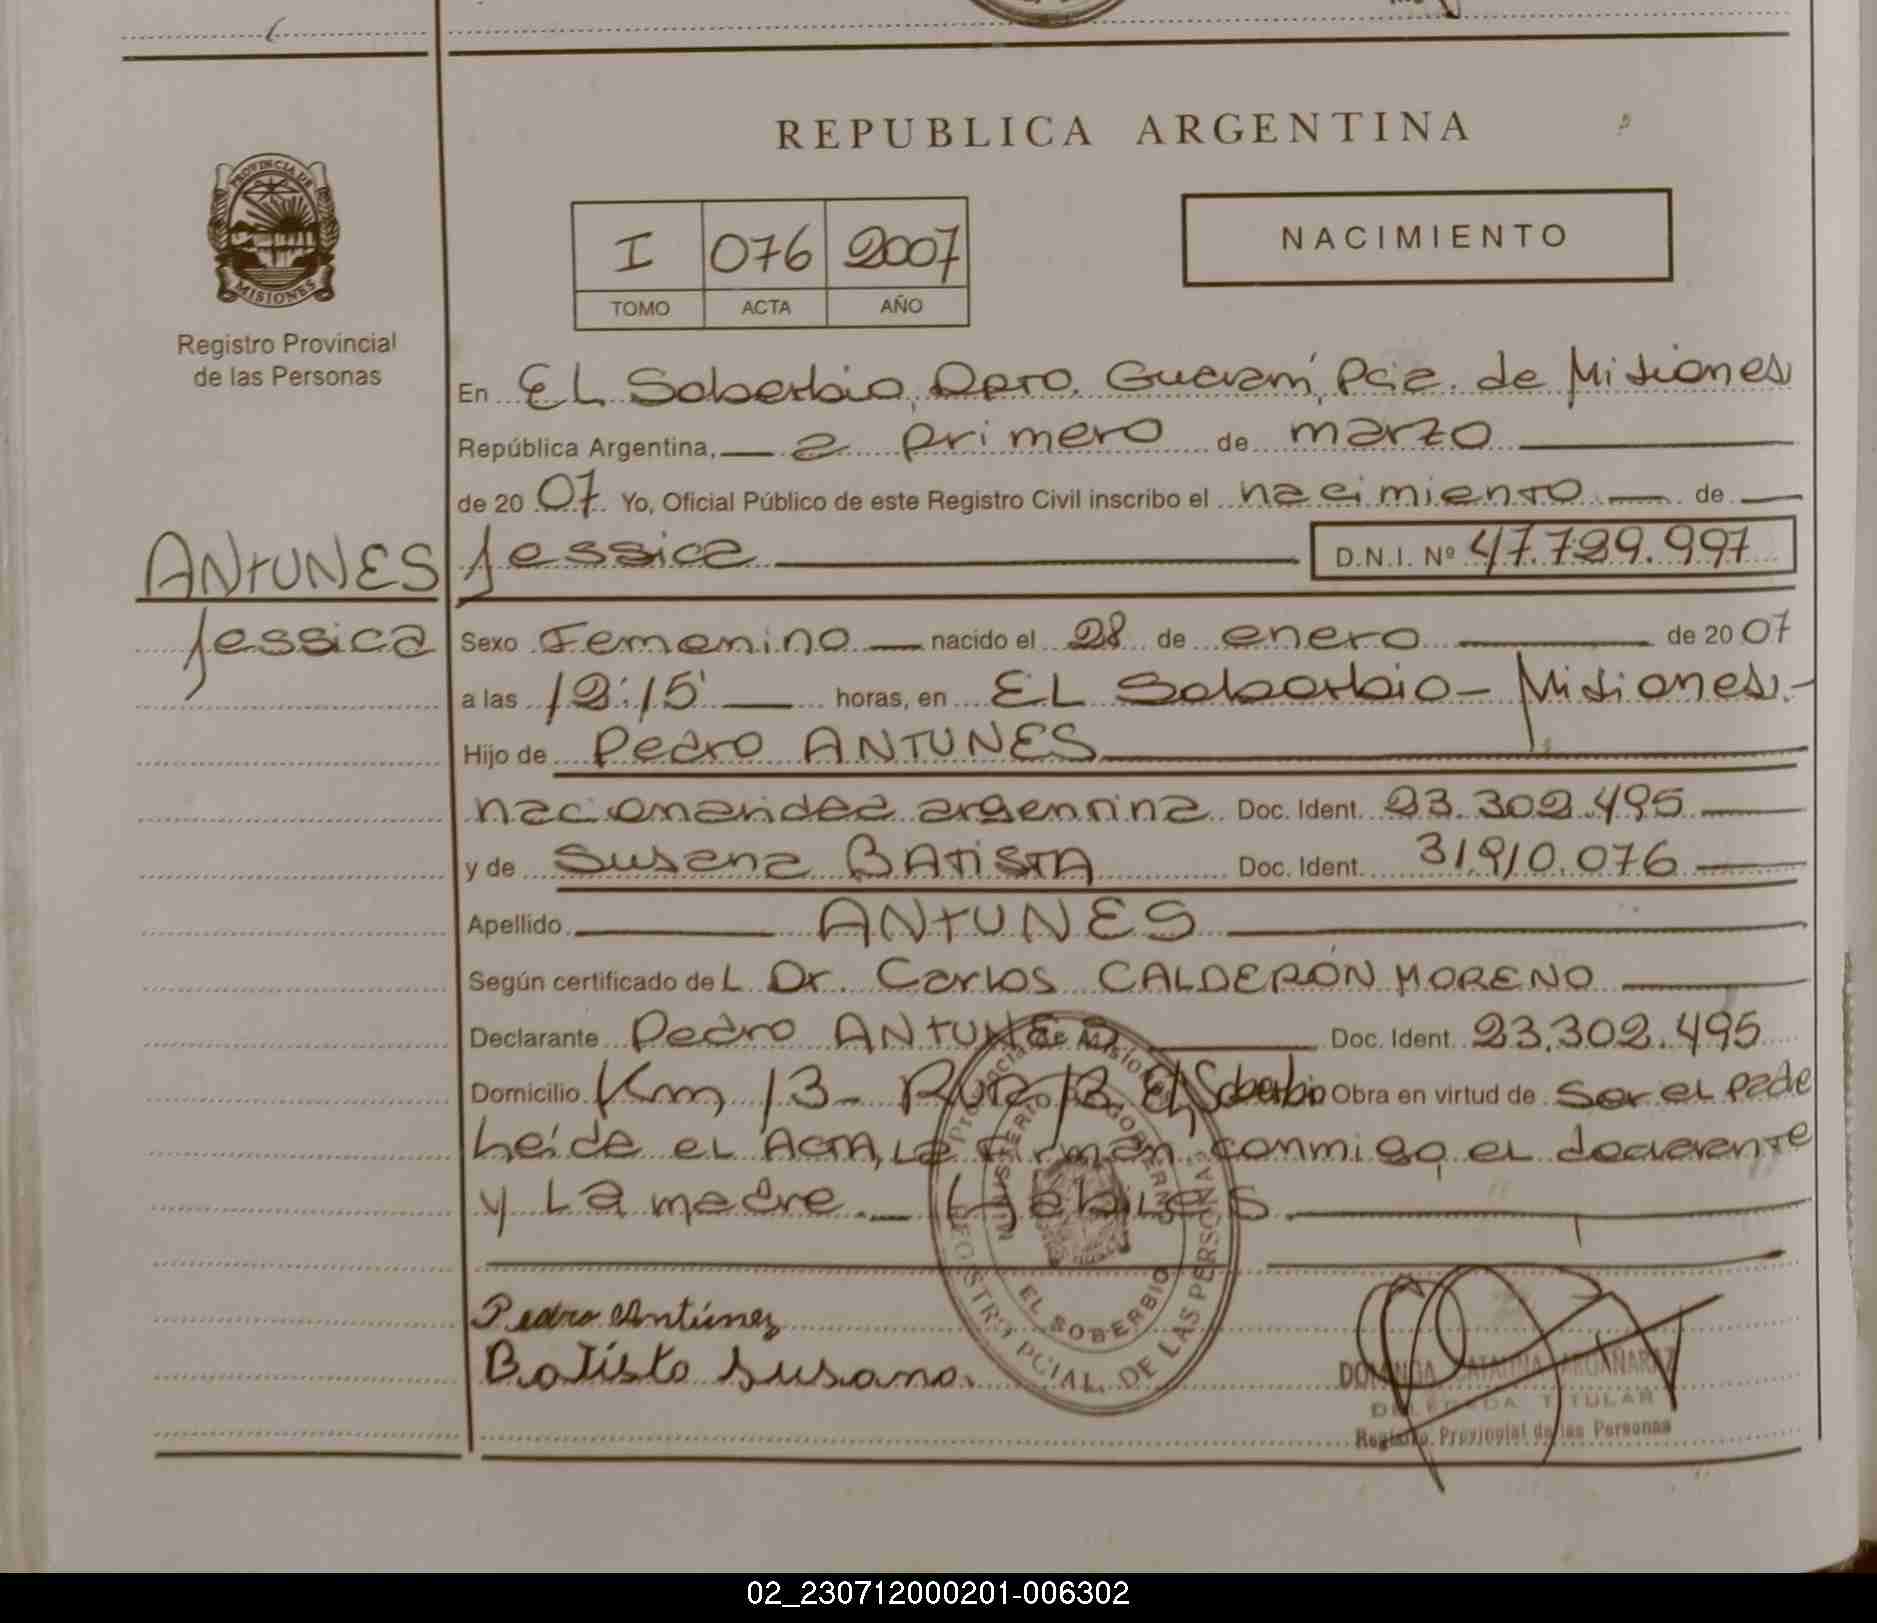 REPUBLICA ARGENTINA
PROVINCIA DE MISIONES
Registro Provincial
de las Personas
I 076 2007
TOMO ACTA AÑO
NACIMIENTO
En El Soberbio, Dpto. Guaraní, Pcia. de Misiones
República Argentina, a primero de marzo
de 2007 Yo, Oficial Público de este Registro Civil inscribo el nacimiento de
ANTUNES Jessica D.N.I. Nº 47.789.997
Jessica
Sexo Femenino nacido el 28 de enero de 2007
a las 12:15' horas, en EL Soberbio - Misiones.-
Hijo de Pedro ANTUNES
nacionalidad argentina Doc. Ident. 23.302.495
y de Susana BATISTA Doc. Ident. 31.910.076
Apellido ANTUNES
Según certificado del Dr. Carlos CALDERÓN MORENO
Declarante Pedro ANTUNES Doc. Ident. 23.302.495
Domicilio Km 13 - Ruta 13 El Soberbio Obra en virtud de ser el padre
Leída el Acta, la firman conmigo, el declarante
y la madre. Hábiles.
Pedro Antúnez
Batista Susana.
Provincia de Misiones
MINISTERIO DE GOBIERNO
REGISTRO PCIAL. DE LAS PERSONAS
EL SOBERBIO
DOMINGA CATALINA ARGAÑARAZ
DELEGADA TITULAR
Registro Provincial de las Personas
02_230712000201-006302